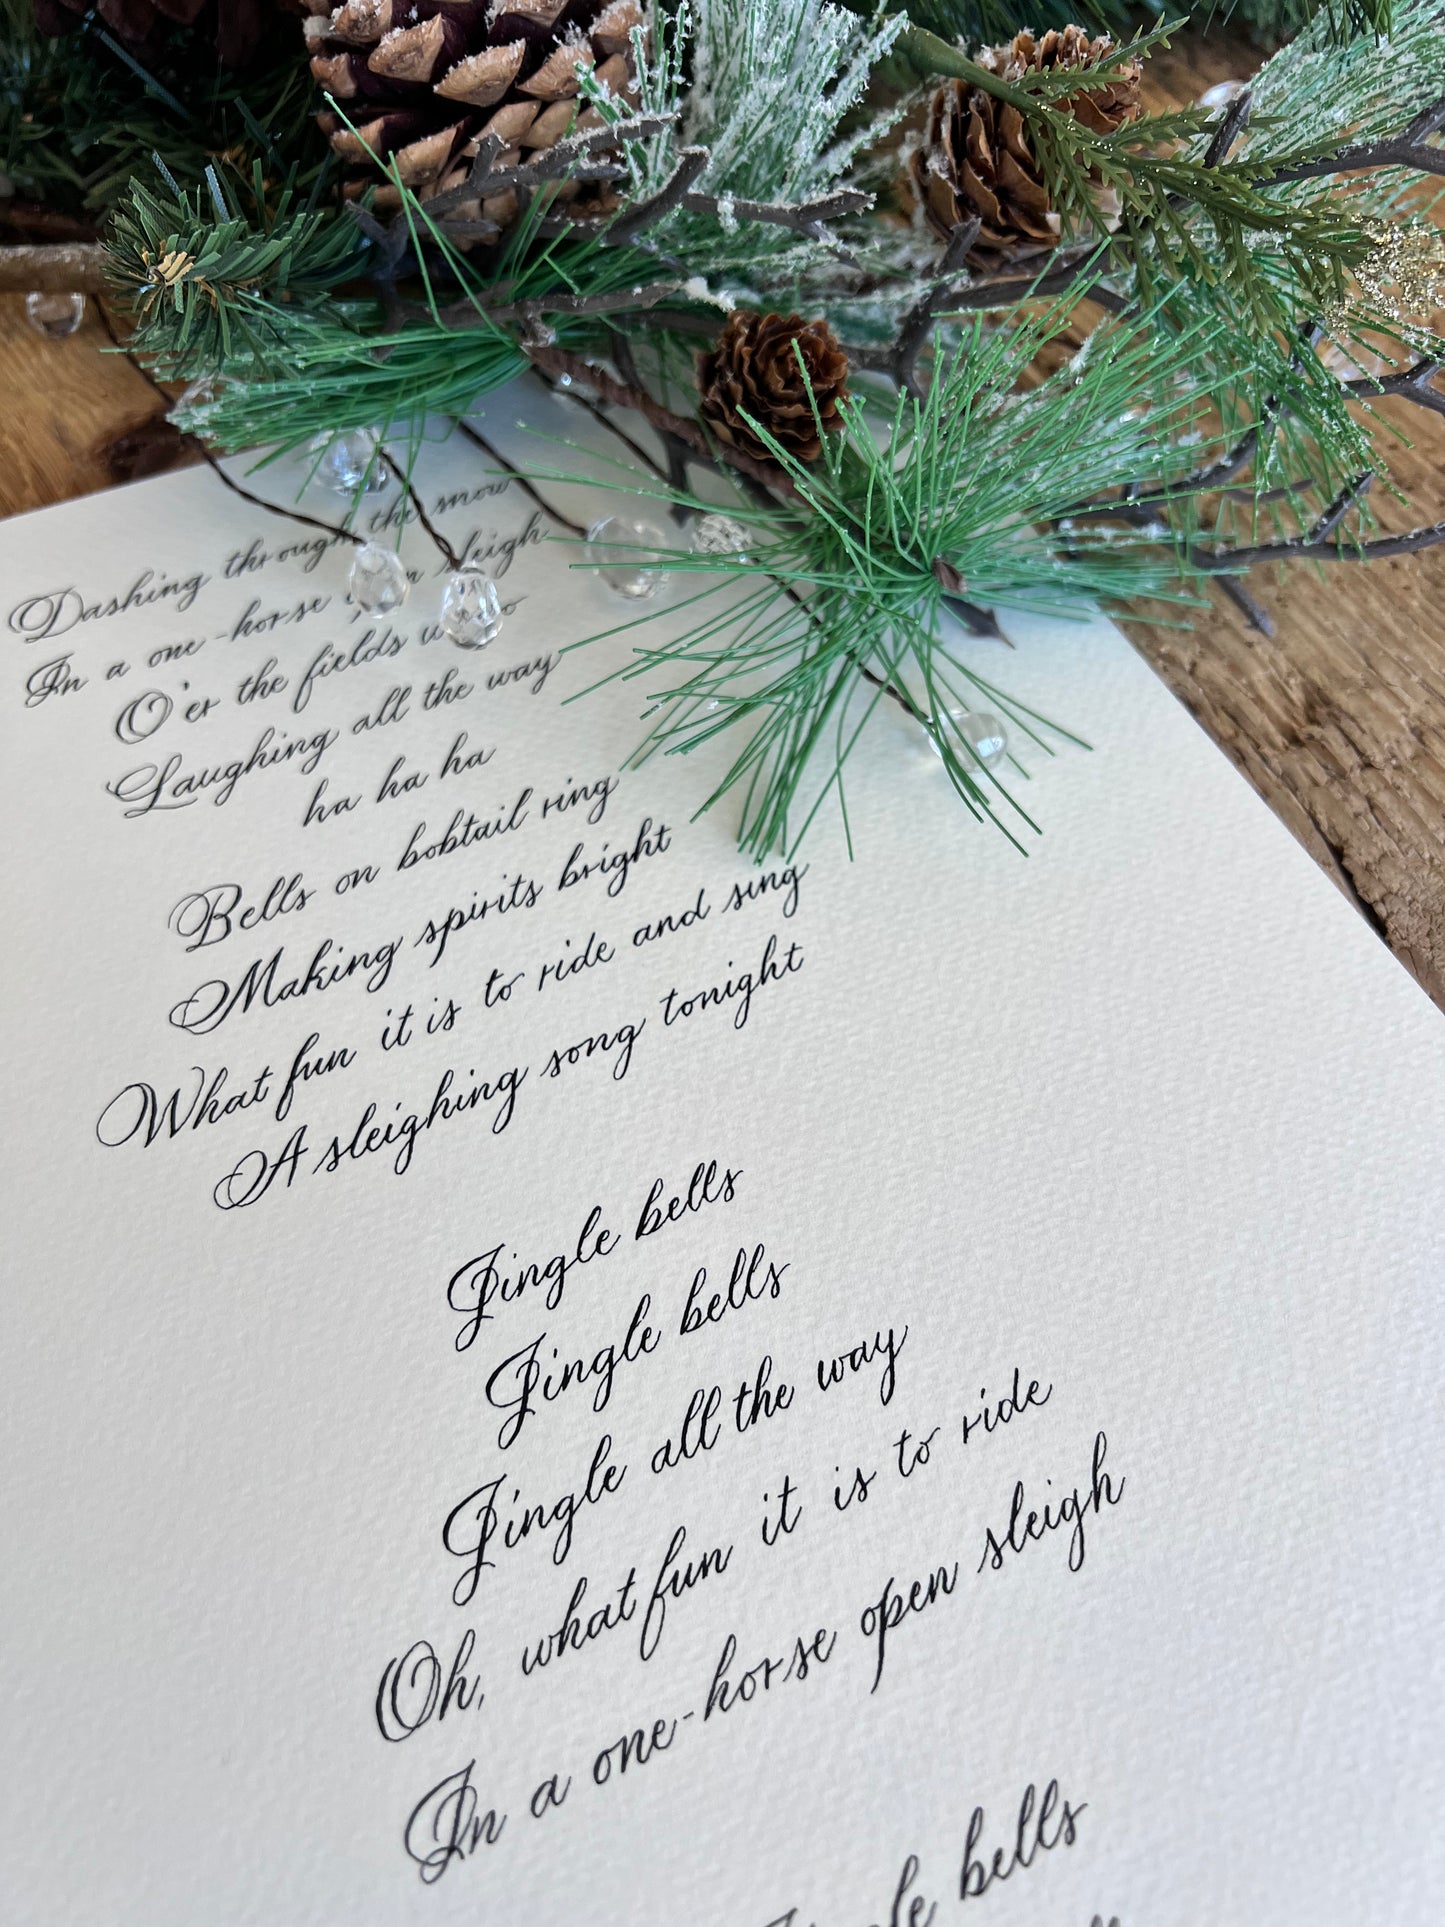 Dashing through the snow
In a one-horse open sleigh
O'er the fields we go
Laughing all the way
ha ha ha
Bells on bobtail ring
Making spirits bright
What fun it is to ride and sing
A sleighing song tonight
Jingle bells
Jingle bells
Jingle all the way
Oh, what fun it is to ride
In a one-horse open sleigh
bells